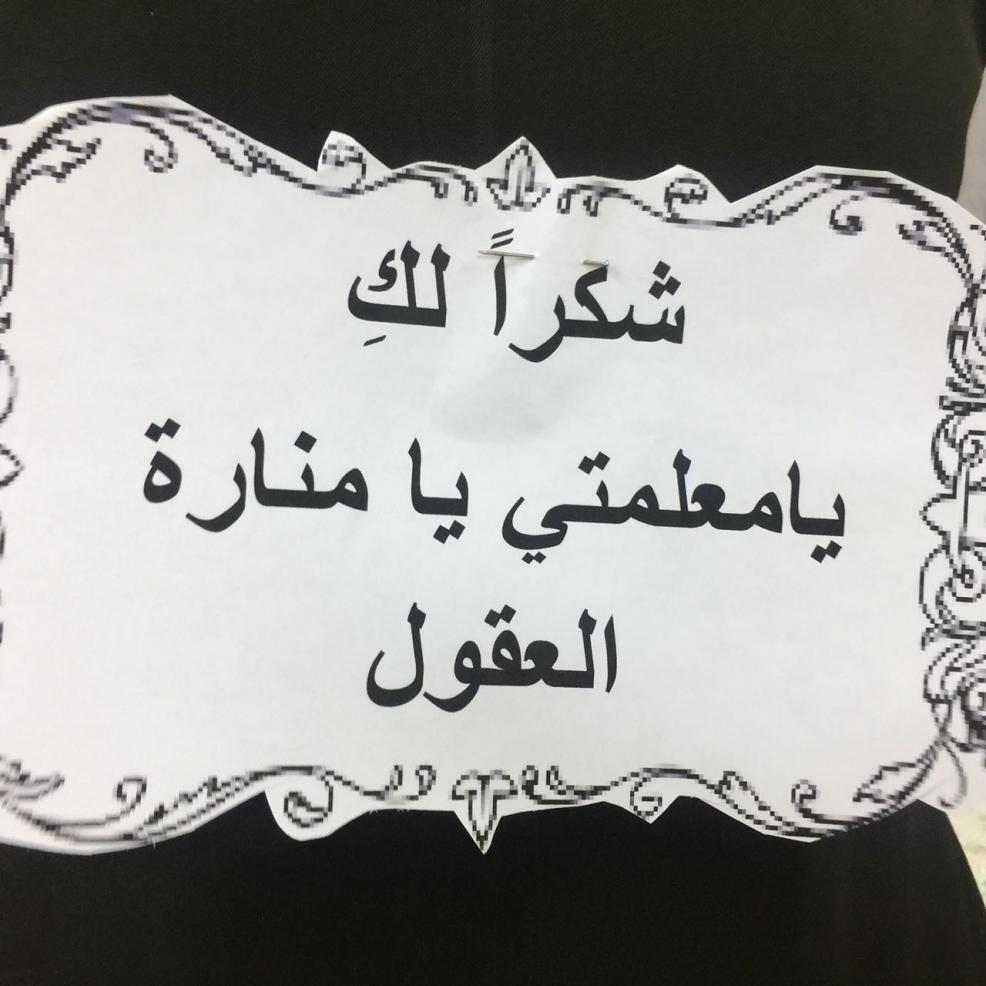 شكراً لكِ
يامعلمتي يا منارة
العقول